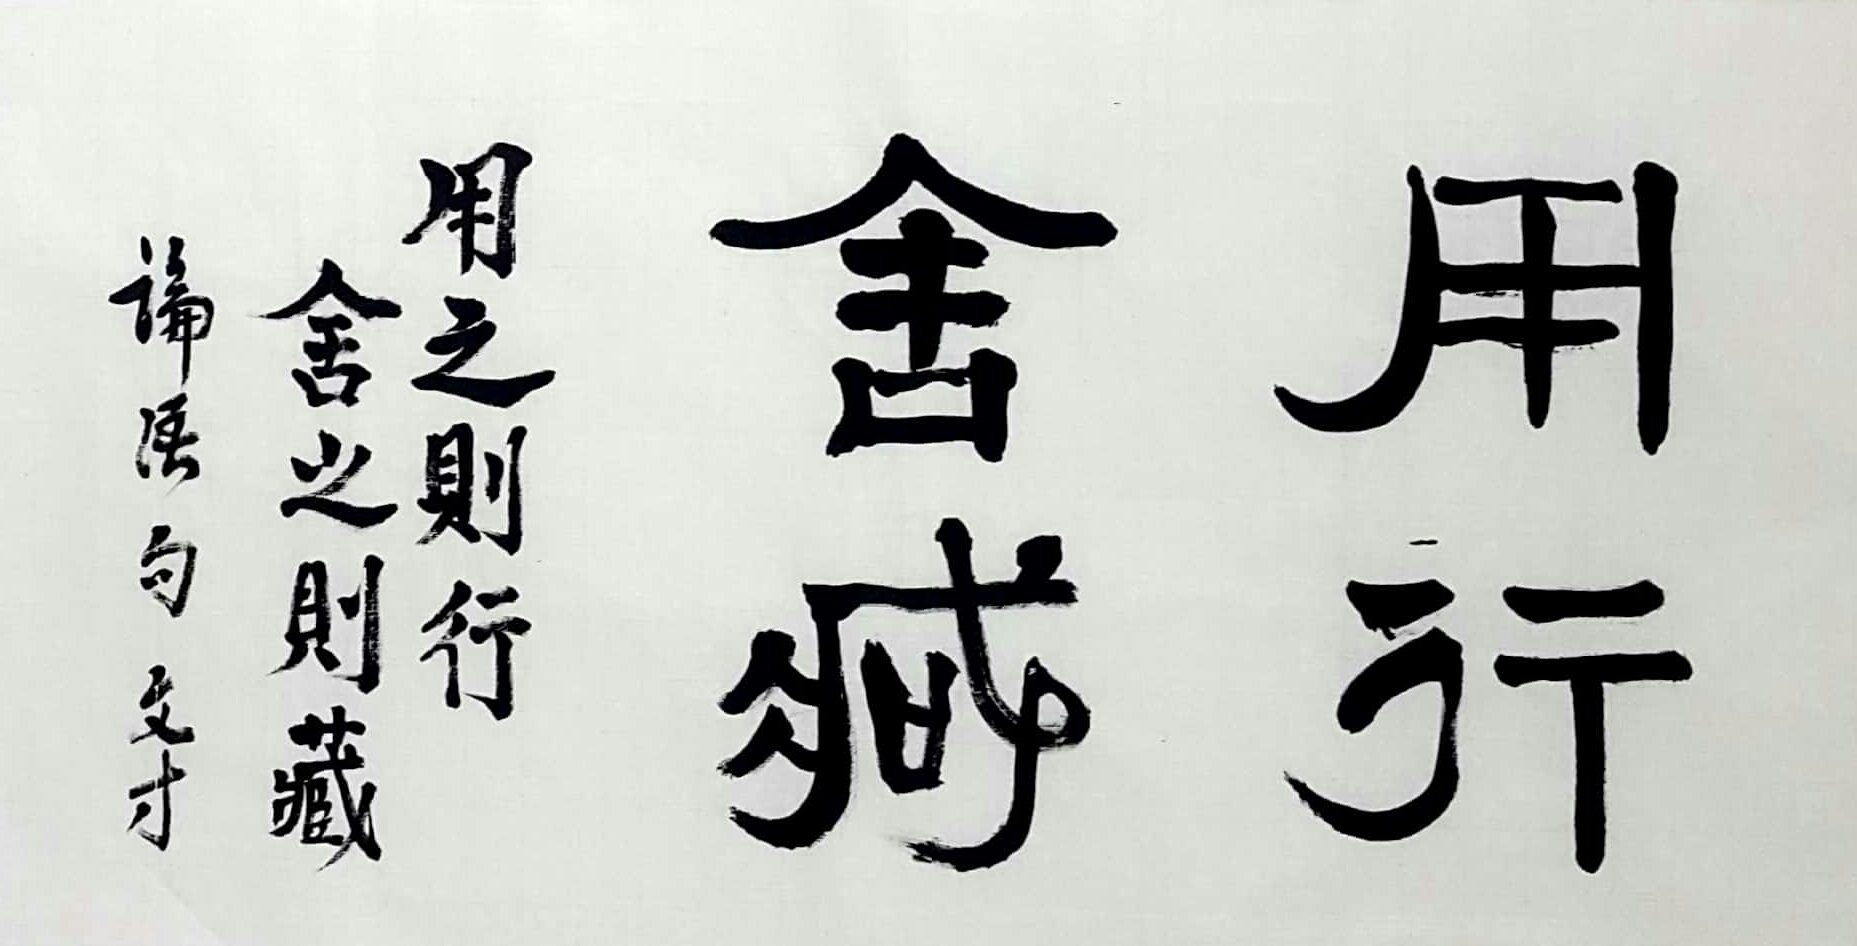 用行
舍藏
用之則行
舍之則藏
論語句 文才